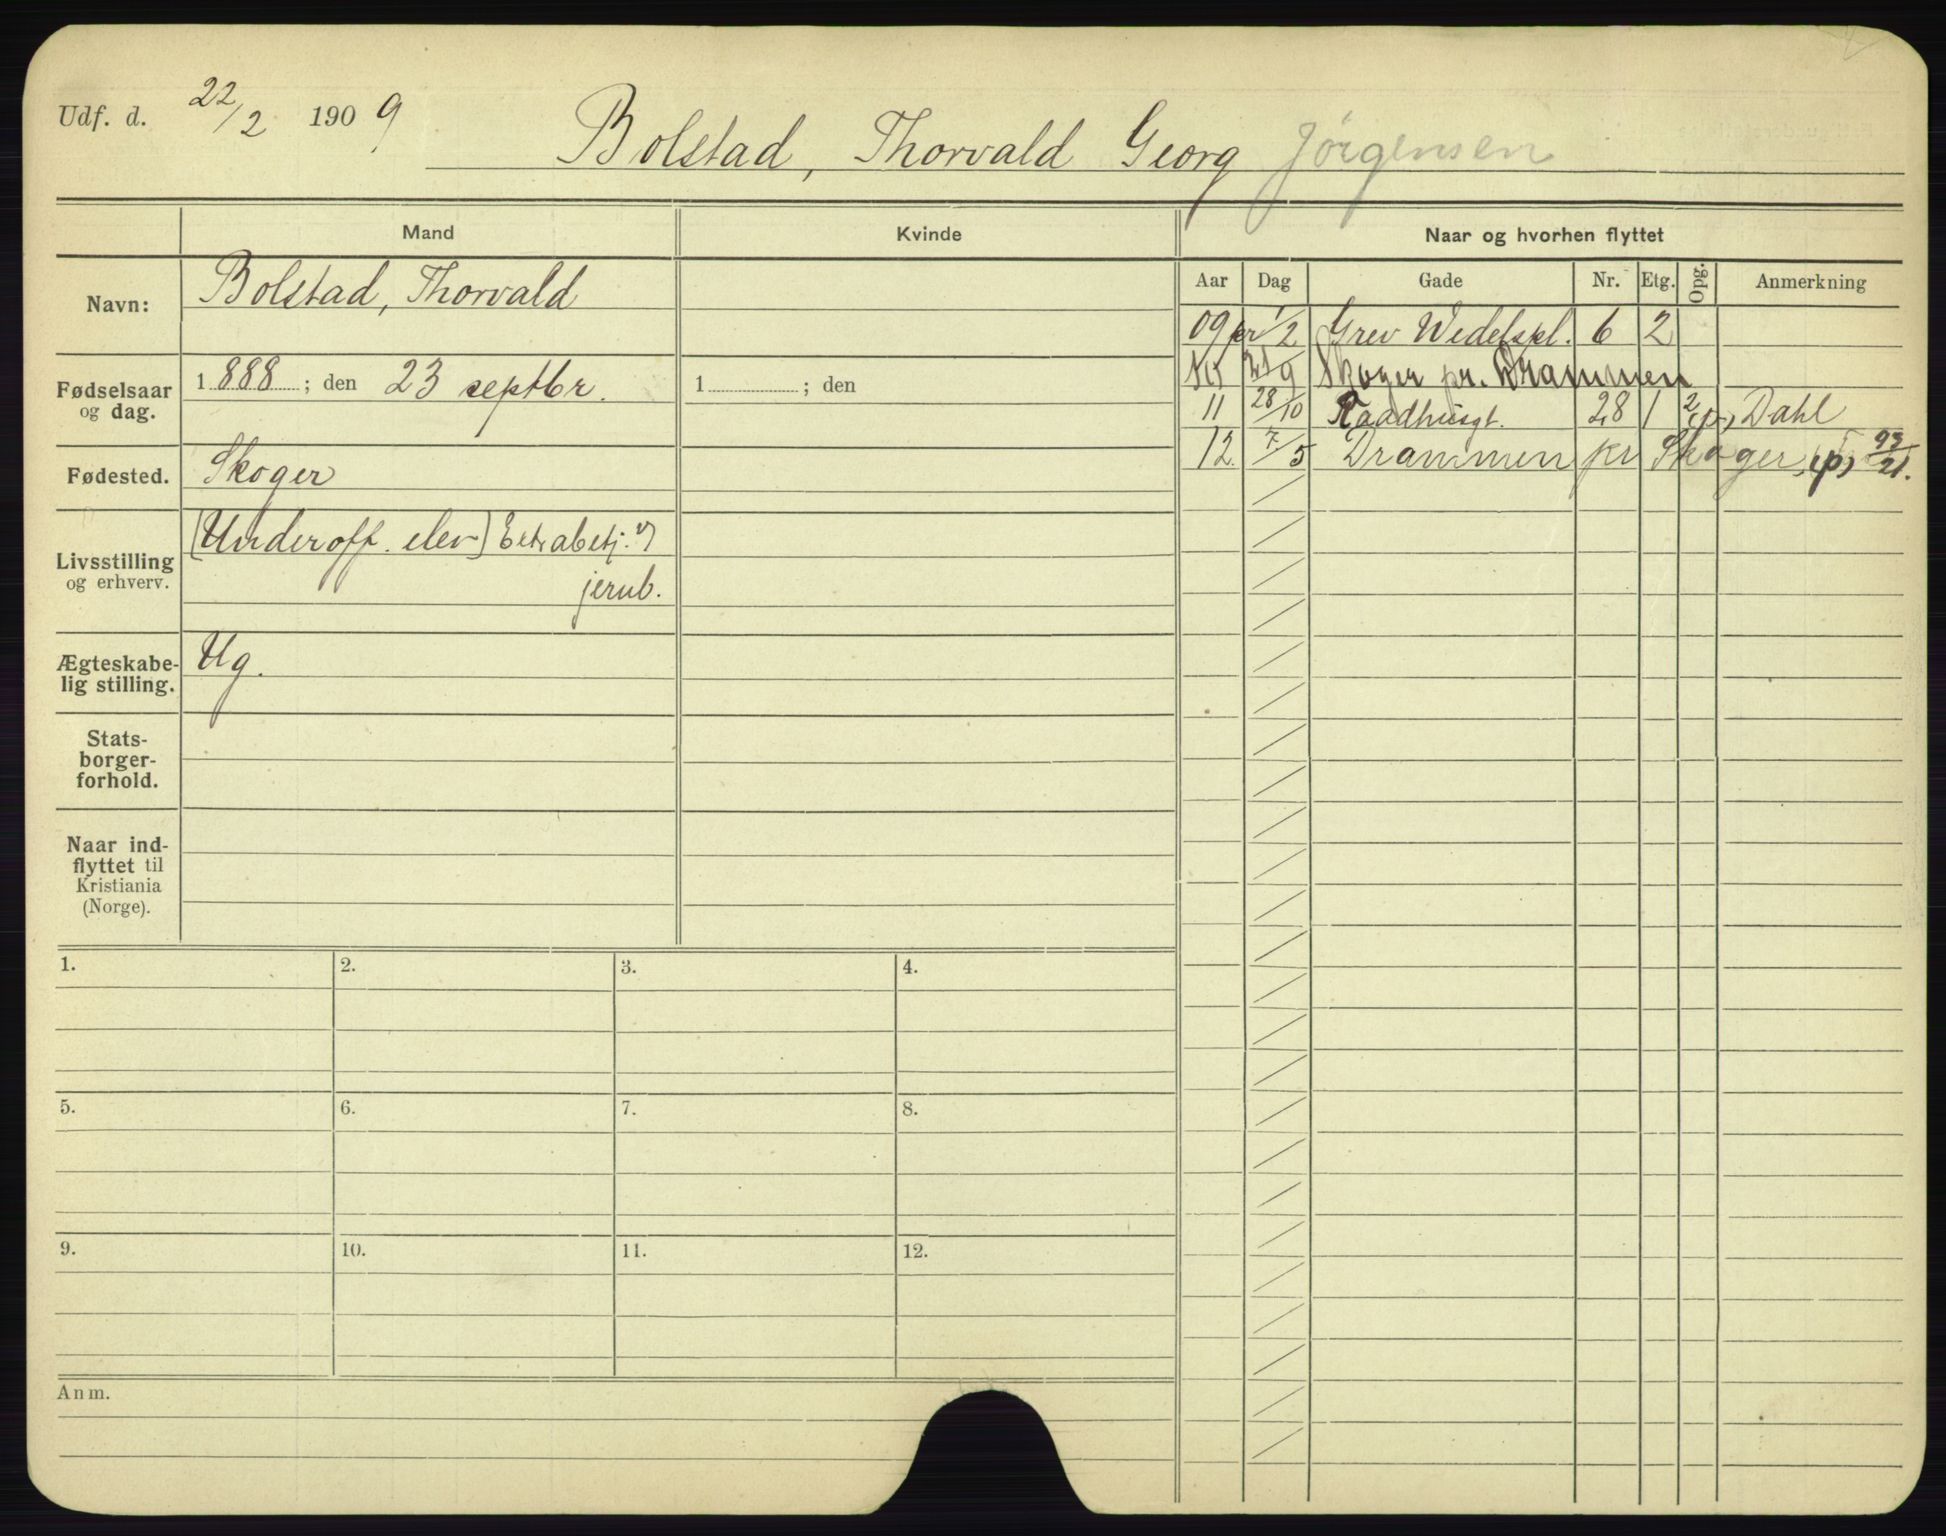 Udf. d. 22/2 1909 Bolstad, Thorvald Georg Jörgensen
Mand Kvinde Naar og hvorhen flyttet
Navn: Bolstad, Thorvald
Fødselsaar og dag. 1888; den 23 septbr. 1 ; den
Fødested. Skoger
Livsstilling og erhverv. [Underoff. elev] Extrabetj. v/
jernb.
Ægteskabelig stilling. Ug.
Stats-
borger-
forhold.
Naar ind-
flyttet til
Kristiania
(Norge).
Aar Dag Gade Nr. Etg. Opg. Anmerkning
09 pr 1/2 Grev Wedelspl. 6 2
21/9 Skoger pr. Drammen
11 28/10 Raadhusgt. 28 1 2 (p) Dahl
12. 7/5 Drammen pr Skoger, (p) 93/21.
1. 2. 3. 4.
5. 6. 7. 8.
9. 10. 11. 12.
Anm.